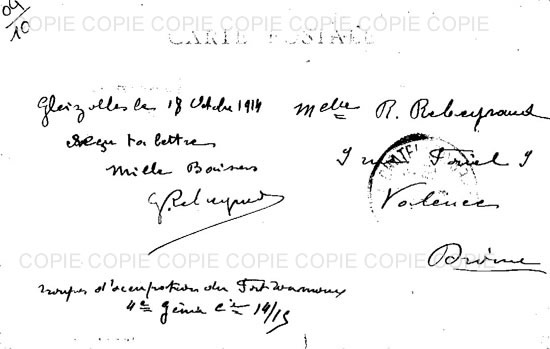 09/10
COPIE COPIE COPIE COPIE COPIE COPIE COPIE
CARTE POSTALE
Gleizolles le 18 Octobre 1914
Reçu ta lettre
Mille Baisers
G Rebeyraud
COPIE COPIE COPIE COPIE COPIE COPIE COPIE
troupes d'occupation du Fort
4e Génie Cie 14/15
Melle R. Rebeyraud
9 rue 9
Valence
Drôme